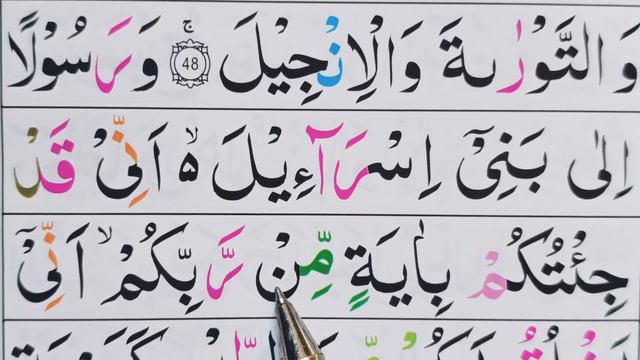 وَالتَّوْرٰىةَ وَالْاِنْجِيْلَ ۚ ﴿48﴾ وَرَسُوْلًا
اِلٰى بَنِىْٓ اِسْرَآءِيْلَ ۙ۵ اَنِّىْ قَدْ
جِئْتُكُمْ بِاٰيَةٍ مِّنْ رَّبِّكُمْ ۙ اَنِّىْٓ